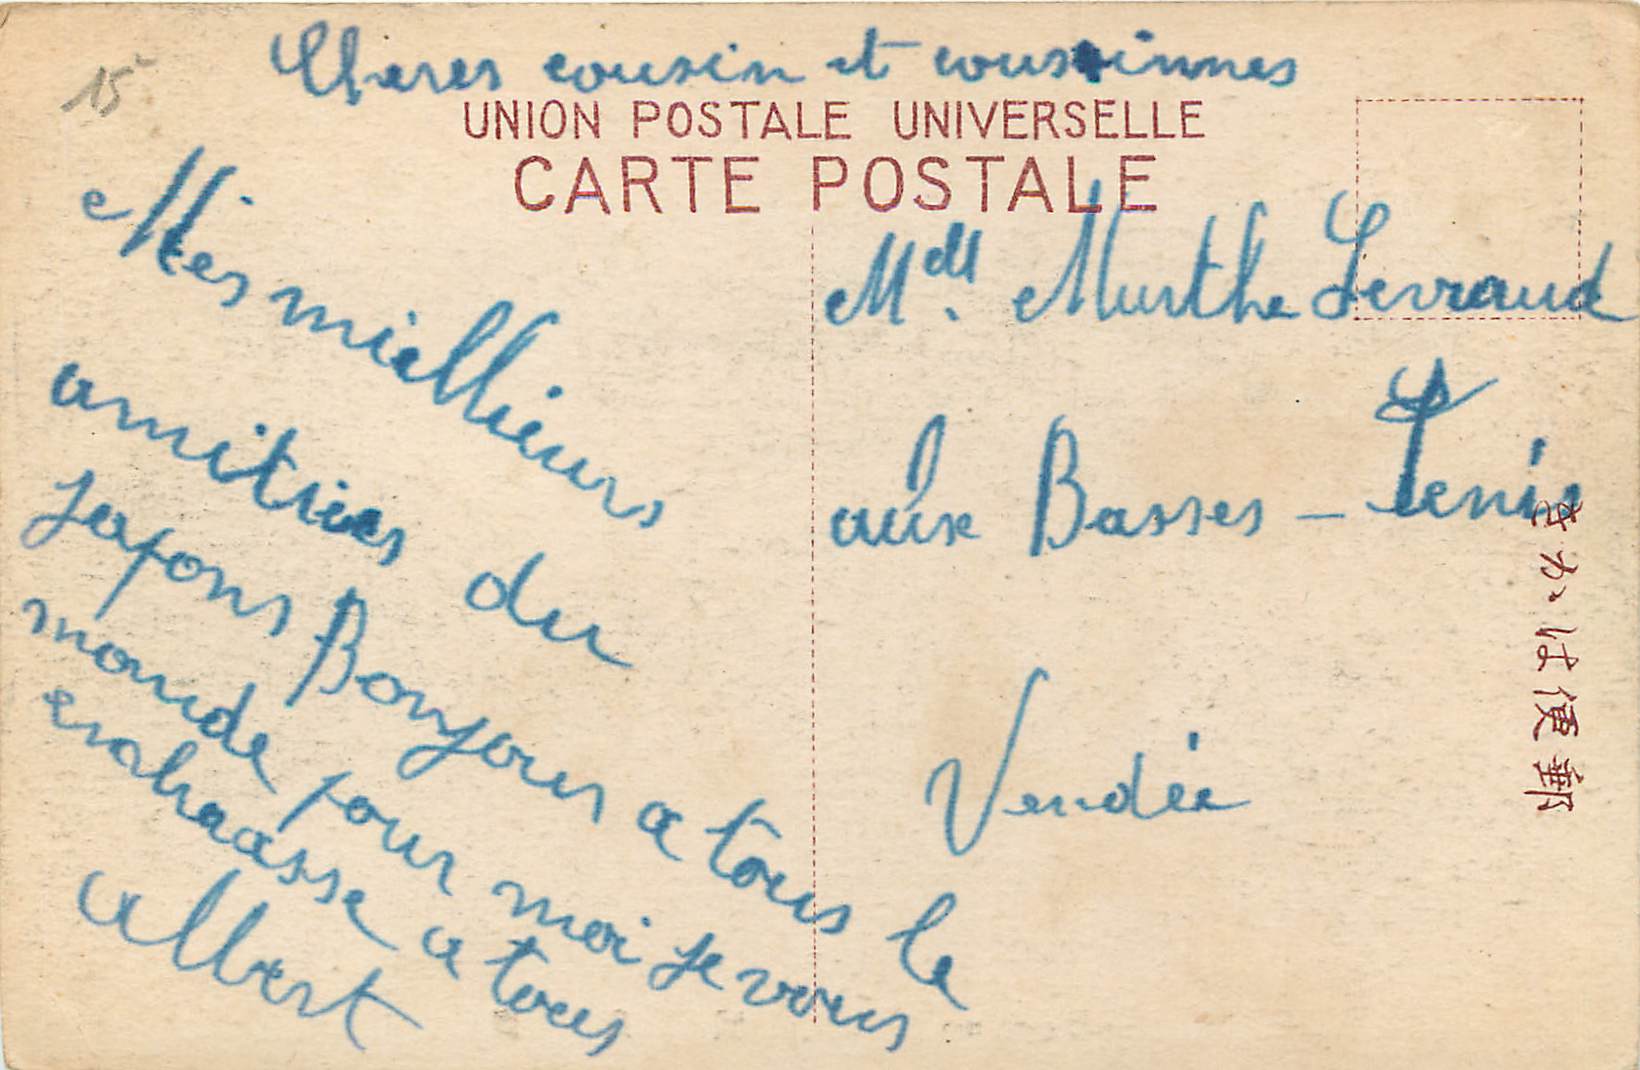 15
Cheres cousin et cousinnes
UNION POSTALE UNIVERSELLE
CARTE POSTALE
Mes miellieurs
amitiies du
Japons Bonjours a tous le
monde pour moi je vous
enbrasse a tous
Albert
Mdll. Marthe Levraud
aux Basses - Tenis
Vendée
きかは便郵